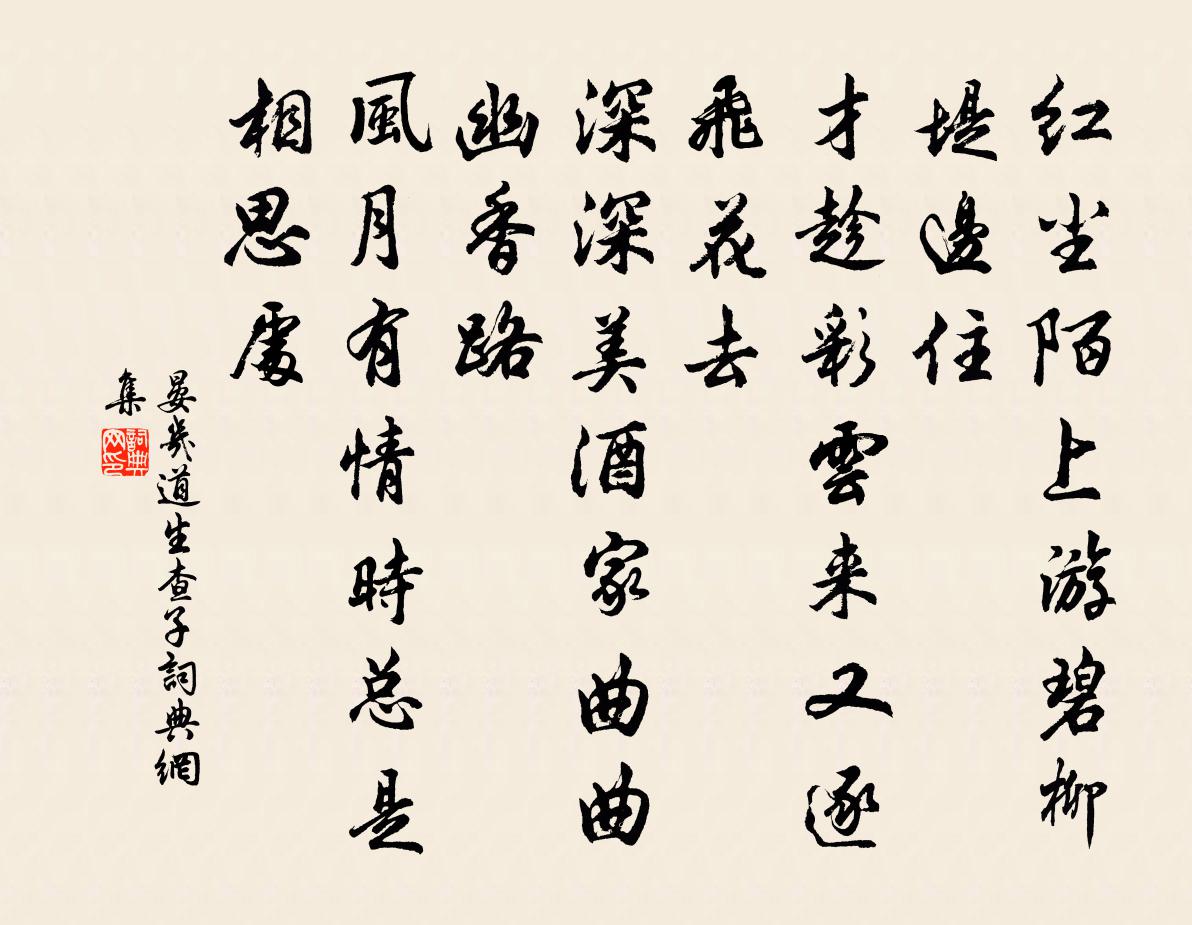 红尘陌上游碧柳
堤邊住
才趁彩雲来又逐
飛花去
深深美酒家曲曲
幽香路
風月有情時总是
相思處
晏幾道生查子詞典網
集
詞典网印